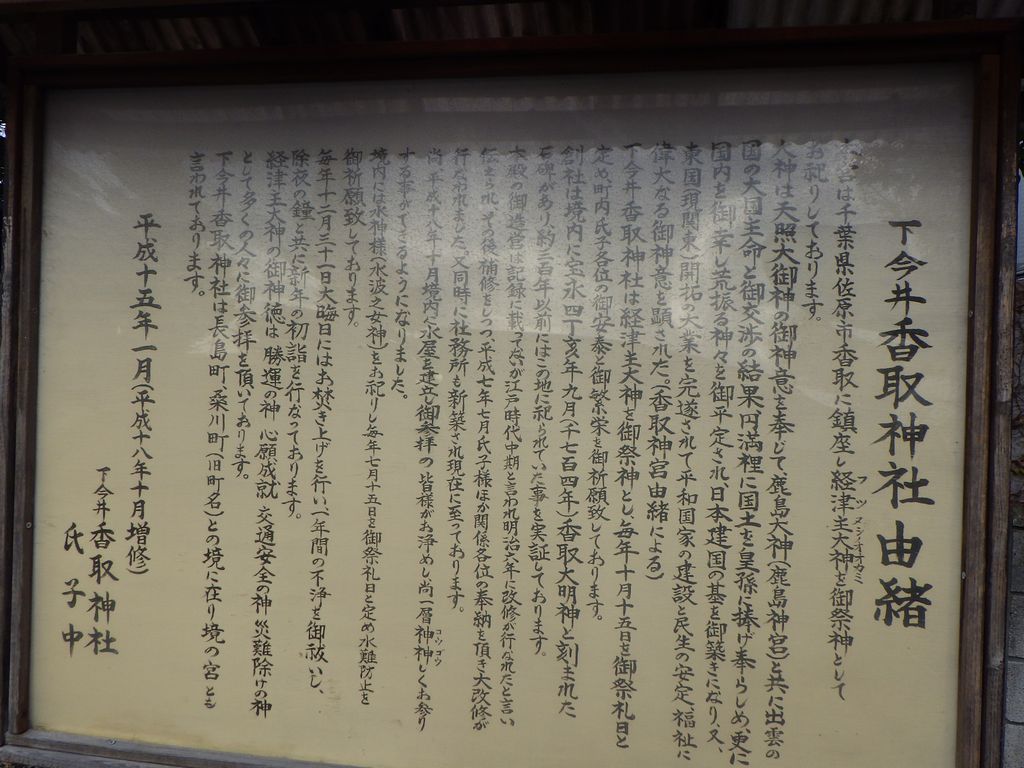 下今井香取神社由緒
本宮は千葉県佐原市香取に鎮座し経津主大神を御祭神として
フツヌシノオオカミ
お祀りしております。
大神は天照大御神の御神意を奉じて、鹿島大神(鹿島神宮)と共に出雲の
国の大国主命と御交渉の結果円満裡に国土を皇孫に捧げ奉らしめ、更に
国内を御幸し荒振る神々を御平定され日本建国の基を御築きになり又、
東国(現関東)開拓の大業を完遂されて平和国家の建設と民生の安定福祉に
偉大なる御神意を顕された。(香取神宮由緒による)
下今井香取神社は経津主大神を御祭神とし、毎年十月十五日を御祭礼日と
定め町内氏子各位の御安泰と御繁栄を御祈願致しております。
創社は境内に宝永四丁亥年九月(千七百四年)香取大明神と刻まれた
石碑があり、約三百年以前にはこの地に祀られていた事を実証しております。
本殿の御造営は記録に載ってないが江戸時代中期と言われ明治六年に改修が行なわれたと言い
伝えられ、その後補修をしつつ、平成七年七月氏子様ほか関係各位の奉納を頂き大改修が
行なわれました。又同時に社務所も新築され現在に至っております。
尚、平成十八年十月境内に水屋を建立し御参拝の皆様がお浄めし尚一層神神しくお参り
コウゴウ
する事ができるようになりました。
境内には水神様(水波之女神)をお祀りし毎年七月十五日を御祭礼日と定め水難防止を
御祈願致しております。
毎年十二月三十一日大晦日にはお焚き上げを行い、一年間の不浄を御祓いし、
除夜の鐘と共に新年の初詣を行なっております。
経津主大神の御神徳は 勝運の神 心願成就 交通安全の神 災難除けの神
として多くの人々に御参拝を頂いております。
下今井香取神社は長島町、桑川町(旧町名)との境に在り境の宮とも
言われております。
平成十五年一月(平成十八年十月増修)
下今井香取神社
氏子中